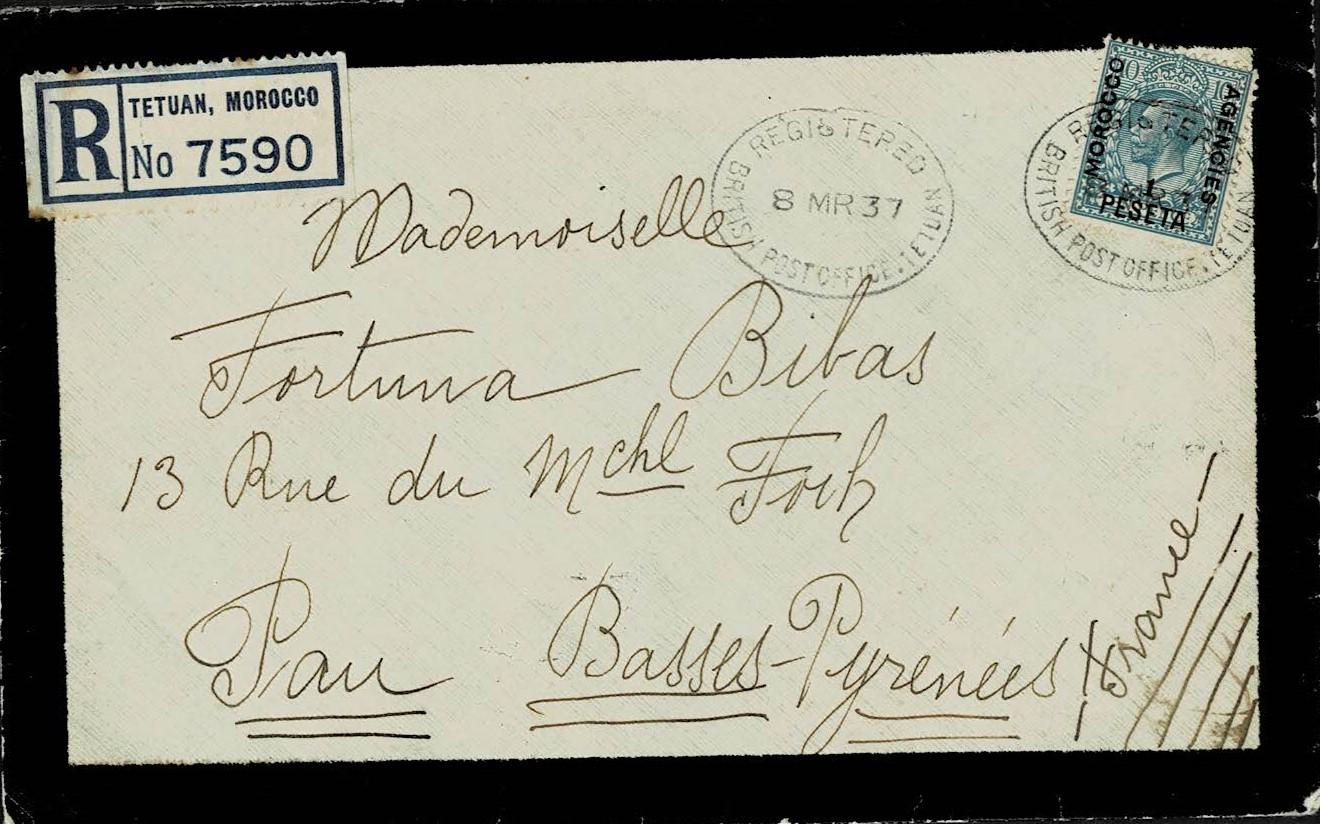 R
TETUAN, MOROCCO
No 7590
REGISTERED
8 MR 37
BRITISH POST OFFICE. TETUAN
MOROCCO
AGENCIES
1
PESETA
REGISTERED
BRITISH POST OFFICE. TETUAN
Mademoiselle
Fortuna Bibas
13 Rue du Mchl Foch
Pau Basses-Pyrénées
France